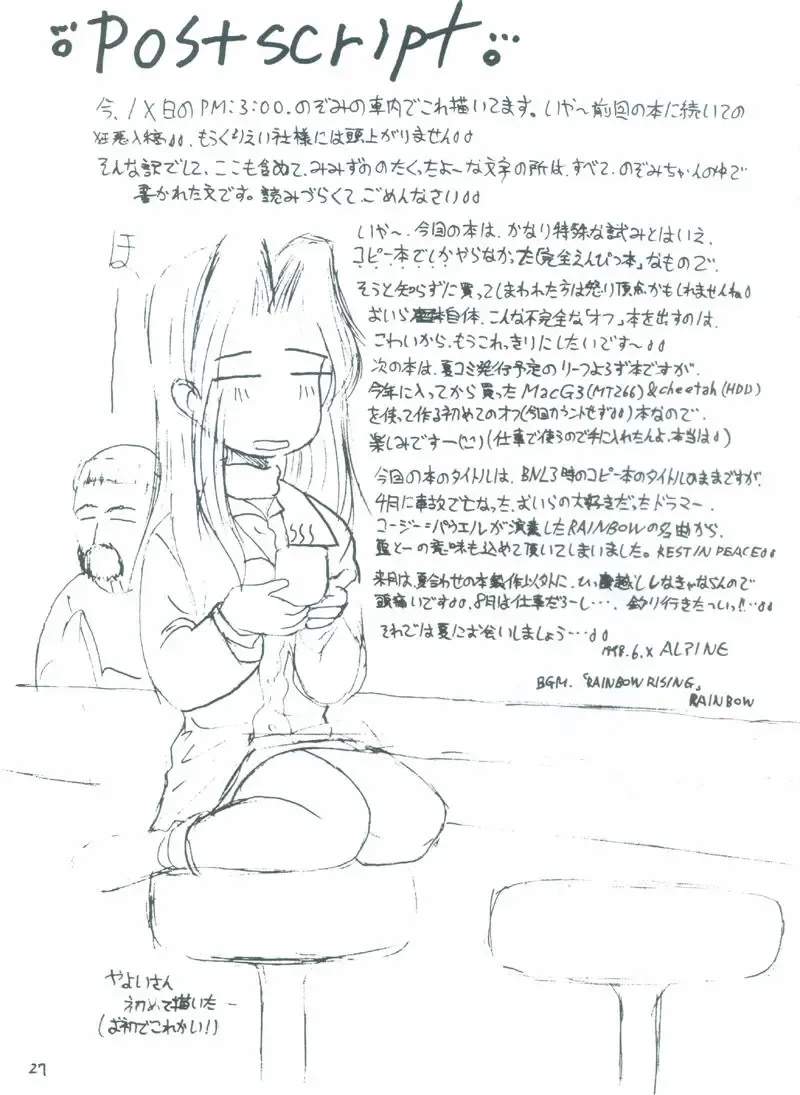 Postscript
今、1X日のPM:3:00.のぞみの車内でこれ描いてます。いや〜前回の本に続いての
狂悪入稿。もうくりえい社様には頭上がりません
そんな訳でして、ここも含めて、みみずののたくったよーな文字の所は、すべて、のぞみちゃんの中で
書かれた文です。読みづらくて、ごめんなさい
ほ、
いや〜、今回の本は、かなり特殊な試みとはいえ、
コピー本でしかやらなかった「完全えんぴつ本」なもので、
そうと知らずに買ってしまわれた方は怒り頂点かもしれませんね
おいら自体、こんな不完全な「オフ」本を出すのは、
こわいから、もうこれっきりにしたいです〜
次の本は、夏コミ発行予定のリーフよろず本ですが、
今年に入ってから買ったMacG3(MT266)&cheetah(HDD)
を使って作る初めてのオフ(今回カウントせず)本なので、
楽しみですー(仕事で使うので手に入れたんよ、本当は)
今回の本のタイトルは、BNL3時のコピー本のタイトルのままですが、
4月に事故で亡なった、おいらの大好きだったドラマー、
コージー=パウエルが演奏したRAINBOWの名曲から、
の意味も込めて頂いてしまいました。REST IN PEACE
来月は、夏合わせの本製作以外に、ひっ越ししなきゃならんので
頭痛いです、8月は仕事だろーし…、釣り行きたっいっ!!…
それでは夏にお会いしましょう…
1998.6.X ALPINE
BGM.「RAINBOW RISING」
RAINBOW
やよいさん
初めて描いたー
(お初でこれかい!)
27